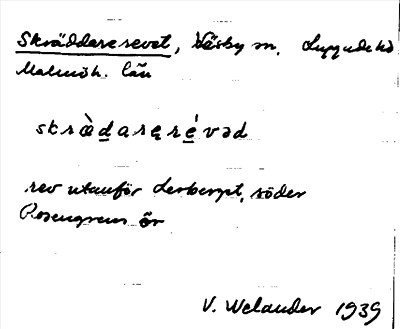 Skräddarerevet, Väsby sn. Luggude hd
Malmöh. län
skrä̀darẹrẹ́vəd
rev utanför Lerberget, söder
Rosengrens ör
V. Welander 1939